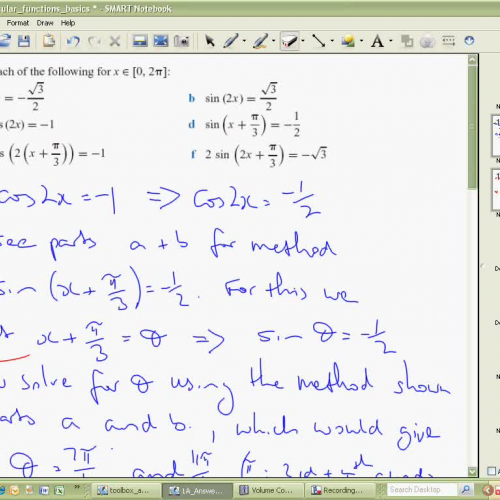 ular_functions_basics * - SMART Notebook
Format Draw Help
ach of the following for x ∈ [0, 2π]:
= -√3/2
b sin (2x) = √3/2
s (2x) = -1
d sin(x + π/3) = -1/2
s (2(x + π/3)) = -1
f 2 sin (2x + π/3) = -√3
cos 2x = -1 ⇒ cos 2x = -1/2
see parts a + b for method
sin (x + π/3) = -1/2. For this we
x + π/3 = θ ⇒ sin θ = -1/2
solve for θ using the method shown
arts a and b, which would give
θ = 7π/ and 11π/
toolbox_a... 1A_Answe... Volume Co... Recording... Search Desktop